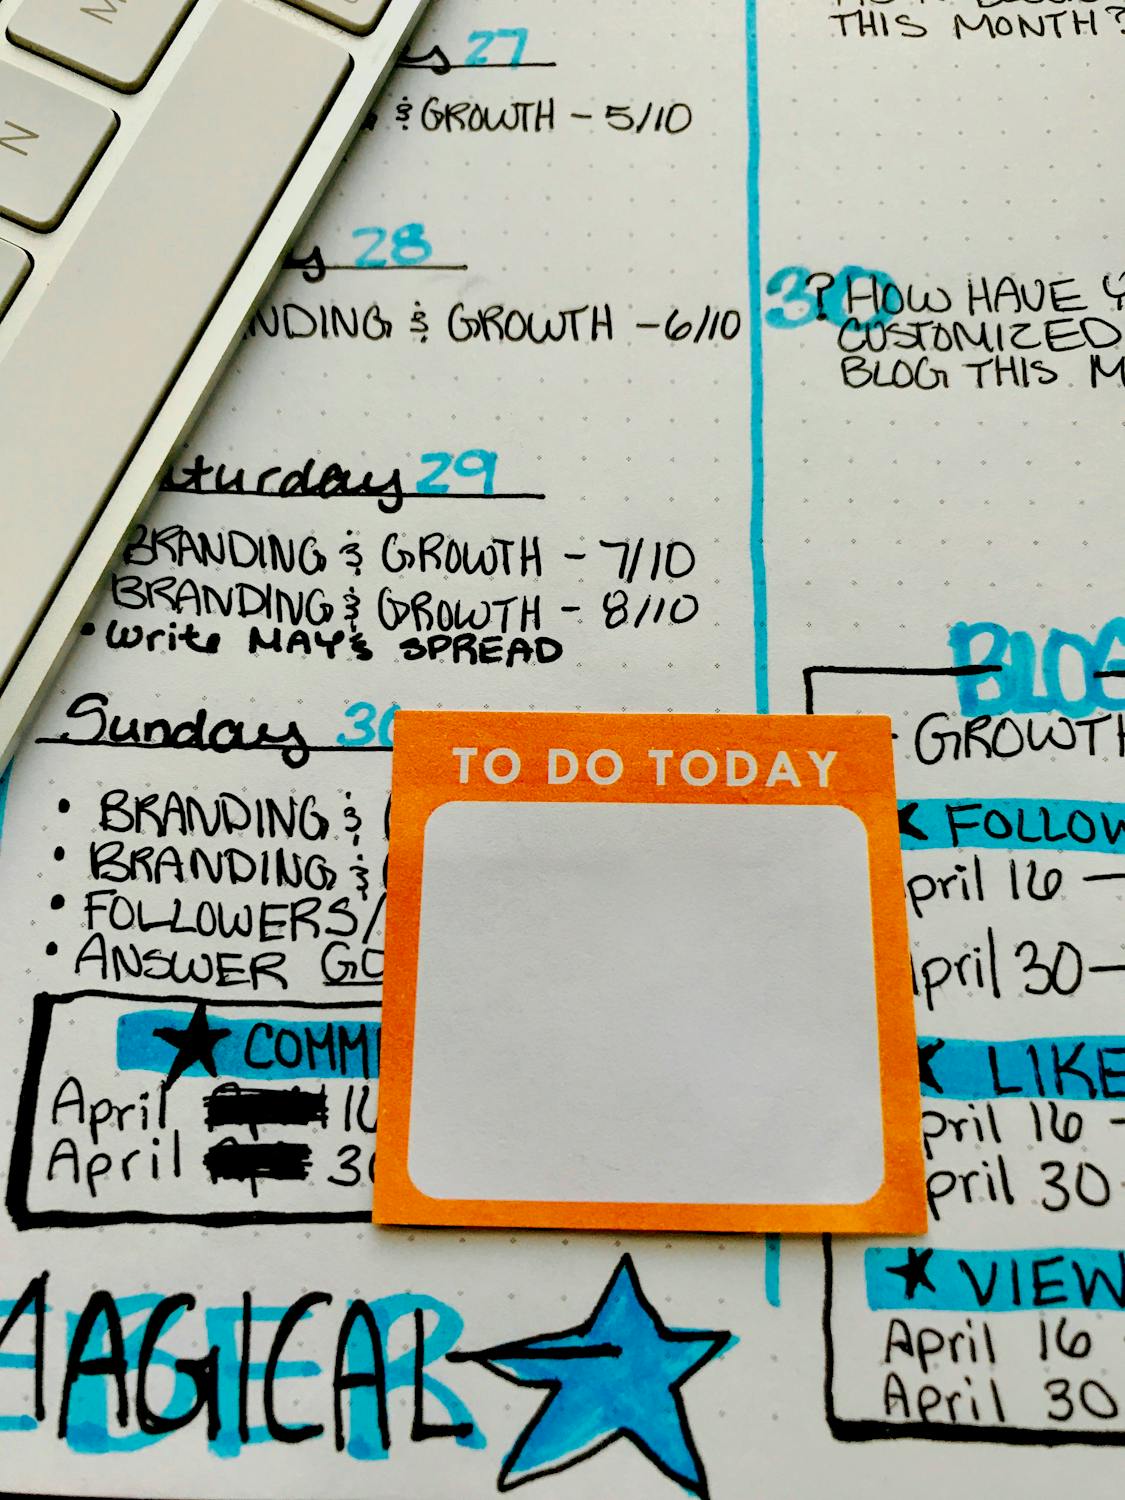 M
N
27
& GROWTH - 5/10
28
& GROWTH - 6/10
29
BRANDING & GROWTH - 7/10
BRANDING & GROWTH - 8/10
• Write MAY's SPREAD
Sunday 30
• BRANDING &
• BRANDING &
• FOLLOWERS/
• ANSWER
★
April 16
April 30
MAGICAL
THIS MONTH?
30 ? HOW HAVE
CUSTOMIZED
BLOG THIS
BLOG
- GROWTH
TO DO TODAY
April 16 -
April 30 -
★ LIKE
April 16 -
April 30
★ VIEW
April 16
April 30